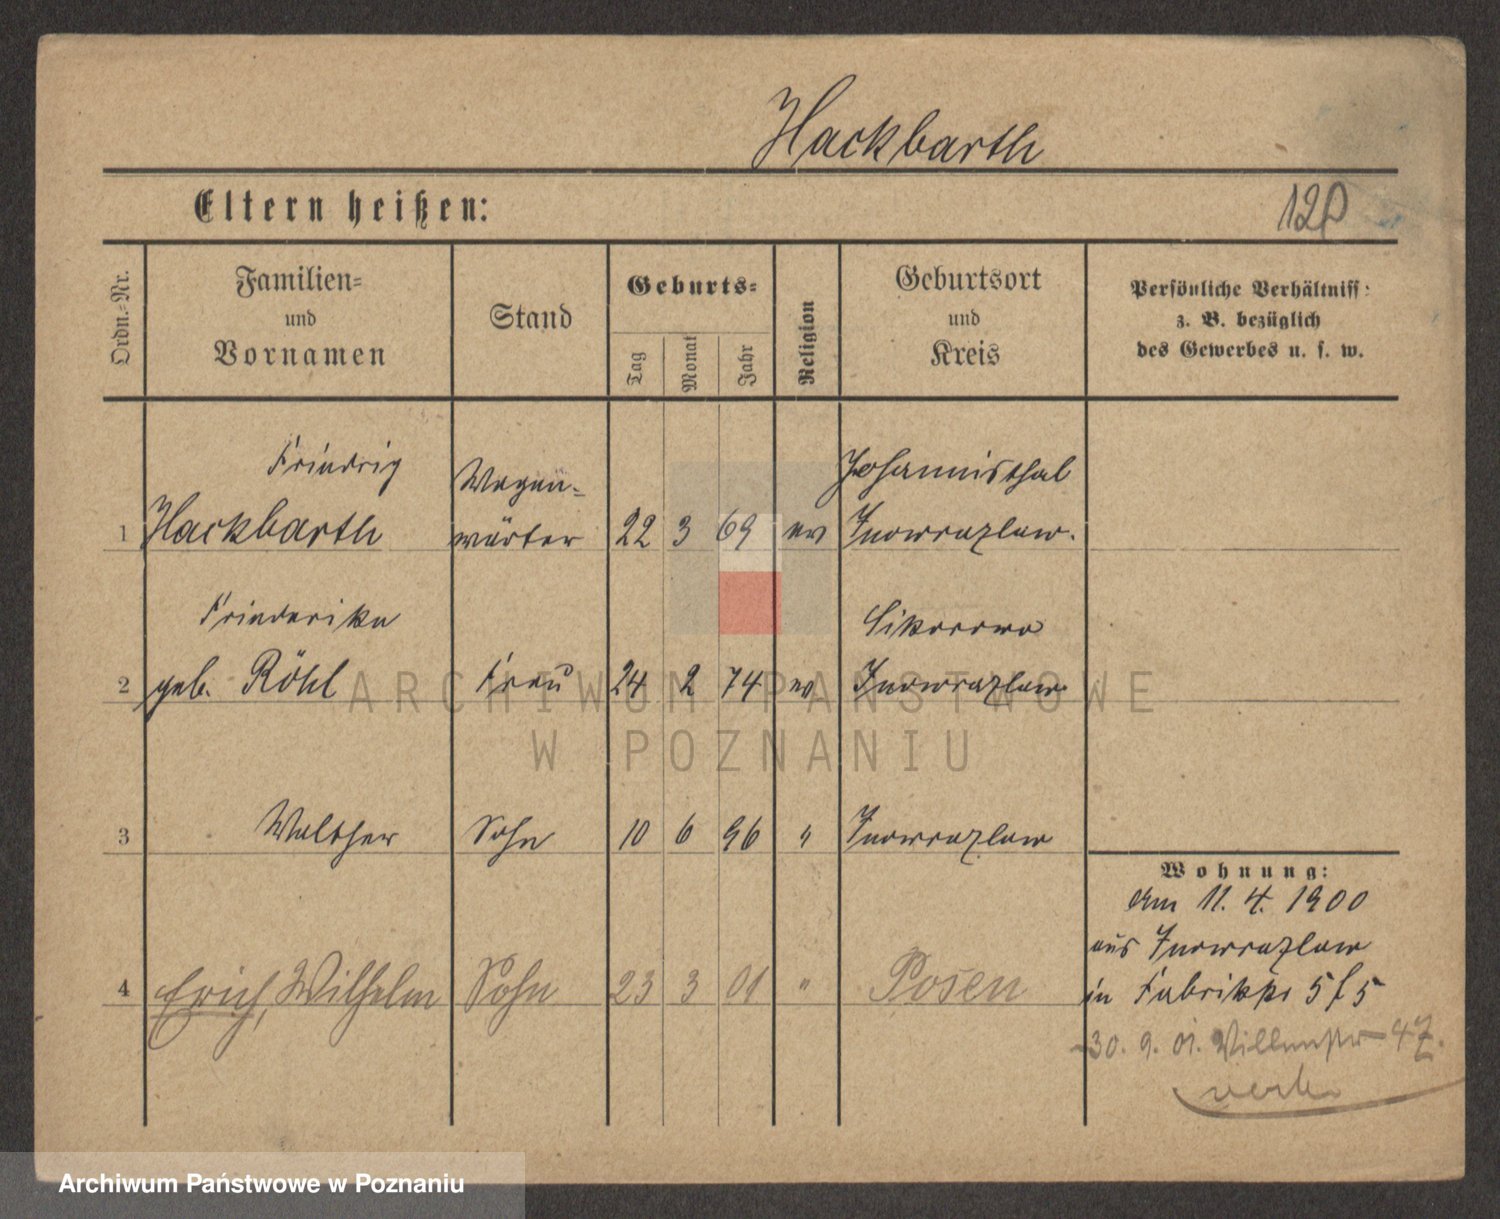 Hackbarth
Eltern heißen:
120
Ordn.-Nr.
Familien-
und
Vornamen
Stand
Geburts-
Tag
Monat
Jahr
Religion
Geburtsort
und
Kreis
Persönliche Verhältniss:
z. B. bezüglich
des Gewerbes u. s. w.
Friedrig Wagen- Johannisthal
1 Hackbarth wärter 22 3 69 ev Inowrazlaw.
Friederike Sikorowo
2 geb. Röhl Frau 24 2 74 ev Inowrazlaw
3 Walther Sohn 10 6 96 " Inowrazlaw
4 Erich, Wilhelm Sohn 23 3 01 " Posen
Wohnung:
am 11. 4. 1900
aus Inowrazlaw
in Fabrikstr 5 f 5
30. 9. 01. 47.
ARCHIWUM PAŃSTWOWE
W POZNANIU
Archiwum Państwowe w Poznaniu